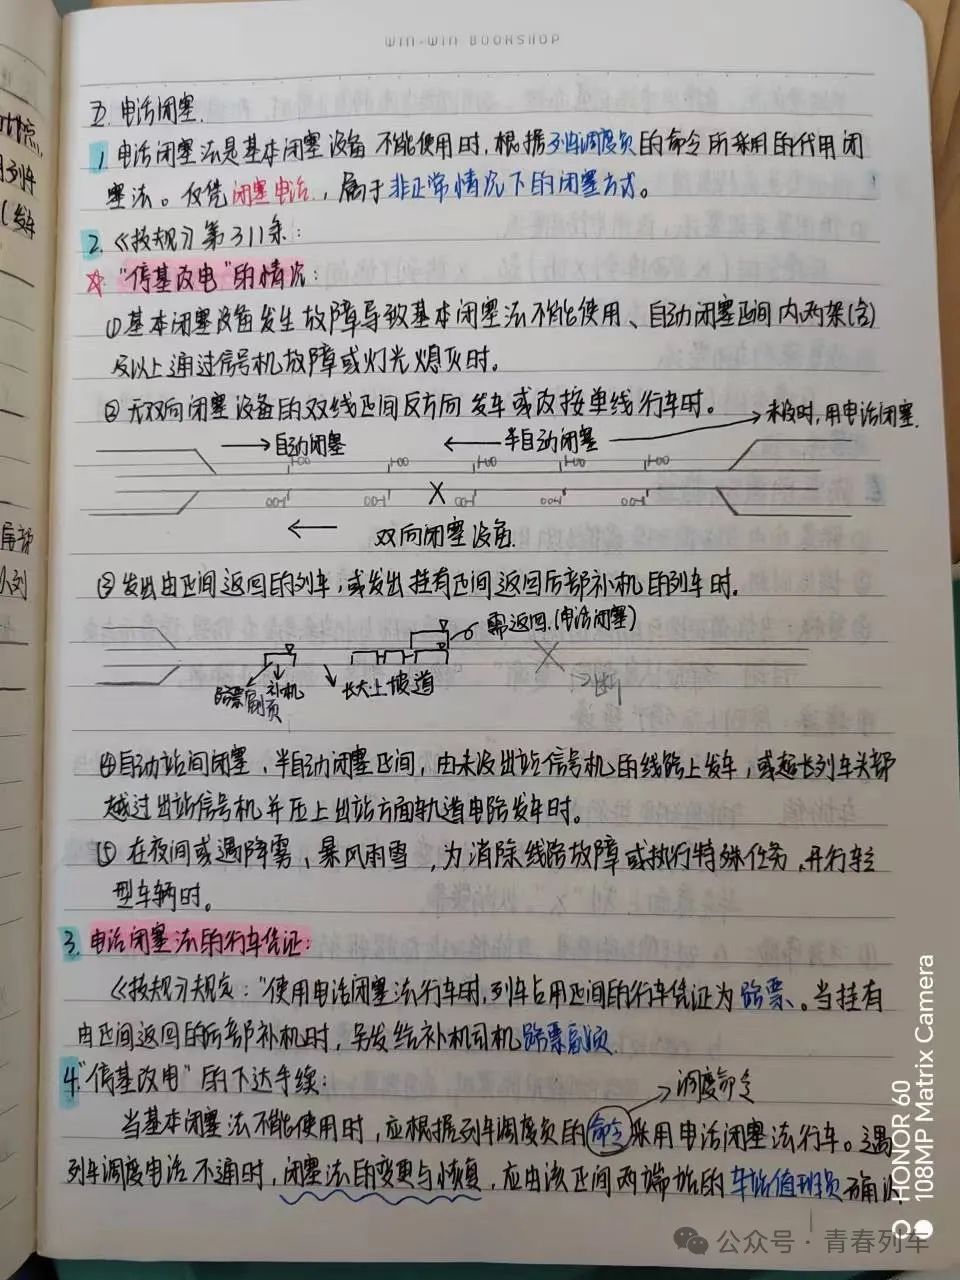 WIN-WIN BOOKSHOP
五.电话闭塞.
1.电话闭塞法是基本闭塞设备不能使用时,根据列车调度员的命令所采用的代用闭
塞法。仅凭闭塞电话,属于非正常情况下的闭塞方式。
2.《技规》第311条:
☆"停基改电"的情况:
①基本闭塞设备发生故障导致基本闭塞法不能使用、自动闭塞区间内两架(含)
及以上通过信号机故障或灯光熄灭时。
②无双向闭塞设备的双线区间反方向发车或改按单线行车时。
→自动闭塞 ←半自动闭塞 → 未设时,用电话闭塞.
← 双向闭塞设备.
③发出由区间返回的列车,或发出挂有区间返回后部补机的列车时。
需返回.(电话闭塞)
路票副页 补机 长大上坡道
④自动站间闭塞、半自动闭塞区间,由未设出站信号机的线路上发车,或超长列车头部
越过出站信号机并压上出站方面轨道电路发车时。
⑤在夜间或遇降雾、暴风雨雪,为消除线路故障或执行特殊任务,开行轻
型车辆时。
3.电话闭塞法的行车凭证:
《技规》规定:"使用电话闭塞法行车时,列车占用区间的行车凭证为路票。当挂有
由区间返回的后部补机时,另发给补机司机路票副页.
4."停基改电"的下达手续:
→调度命令
当基本闭塞法不能使用时,应根据列车调度员的命令采用电话闭塞法行车。遇
列车调度电话不通时,闭塞法的变更与恢复,应由该区间两端站的车站值班员确认
HONOR 60
108MP Matrix Camera
公众号·青春列车